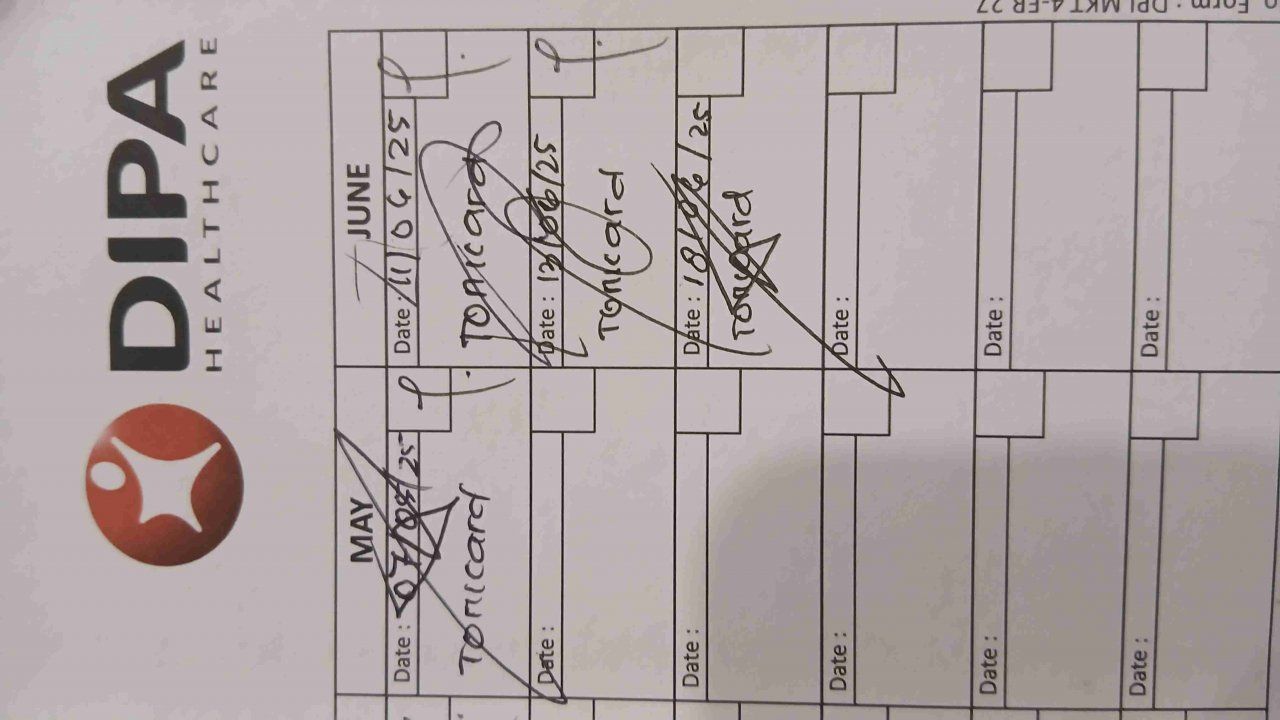 DIPA
HEALTHCARE
o. Form : DPI.MKT4-FR.27
MAY
JUNE
Date : 07/05/25
Tonicard
Date : 11/06/25
Tonicard
Date :
Date : 13/06/25
Tonicard
Date :
Date : 18/06/25
Tonicard
Date :
Date :
Date :
Date :
Date :
Date :